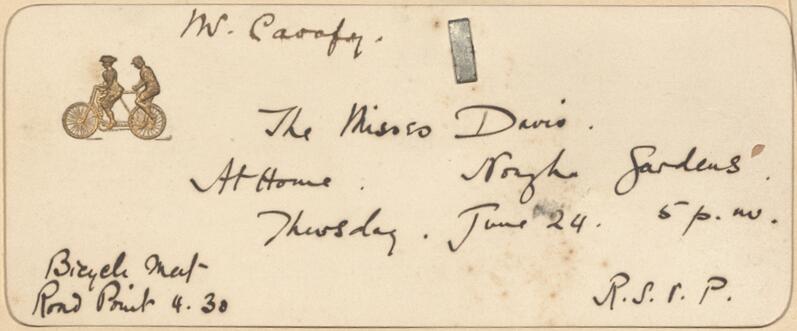 Mr. Cavafy.
The Misses Davis.
At Home. Nouzha Gardens.
Thursday. June 24. 5 p.m.
Bicycle Meet
Rond Point 4.30
R.S.V.P.